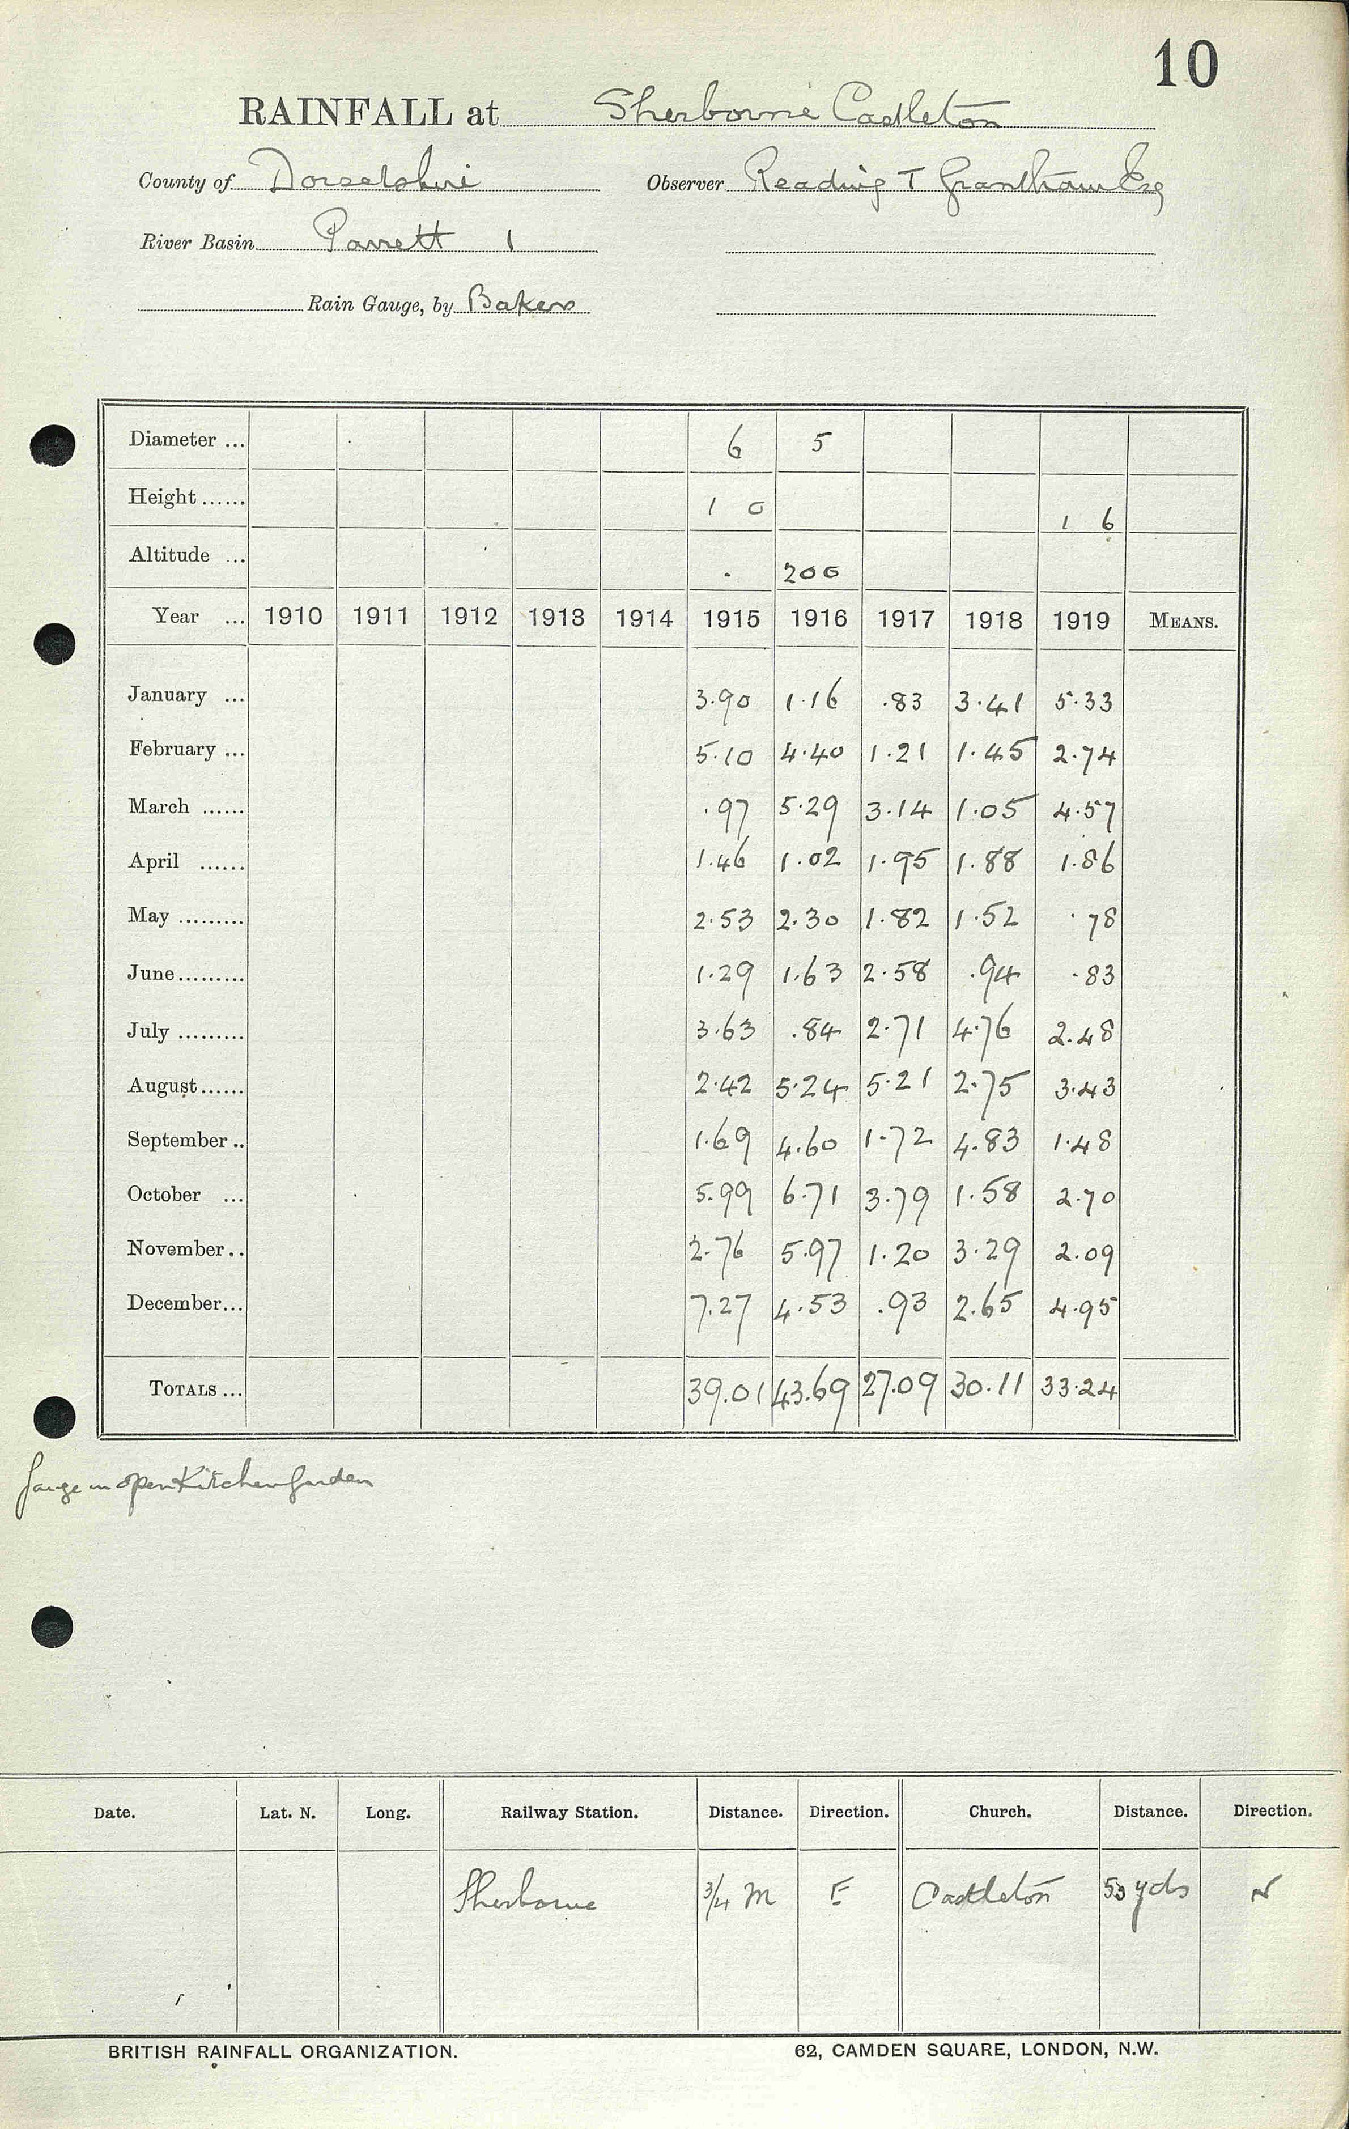 10
RAINFALL at Sherborne Castleton
County of Dorsetshire Observer Reading T Grantham Esq
River Basin Parrett 1
Rain Gauge, by Baker
Diameter ... 6 5
Height ...... 1 0 1 6
Altitude ... 200
Year ... 1910 1911 1912 1913 1914 1915 1916 1917 1918 1919 MEANS.
January ... 3.90 1.16 .83 3.41 5.33
February ... 5.10 4.40 1.21 1.45 2.74
March ...... .97 5.29 3.14 1.05 4.57
April ...... 1.46 1.02 1.95 1.88 1.86
May ......... 2.53 2.30 1.82 1.52 .78
June......... 1.29 1.63 2.58 .94 .83
July ......... 3.63 .84 2.71 4.76 2.48
August...... 2.42 5.24 5.21 2.75 3.43
September .. 1.69 4.60 1.72 4.83 1.48
October ... 5.99 6.71 3.79 1.58 2.70
November.. 2.76 5.97 1.20 3.29 2.09
December... 7.27 4.53 .93 2.65 4.95
TOTALS ... 39.01 43.69 27.09 30.11 33.24
Gauge in open Kitchen Garden
Date. Lat. N. Long. Railway Station. Distance. Direction. Church. Distance. Direction.
Sherborne 3/4 M E Castleton 50 yds N
BRITISH RAINFALL ORGANIZATION. 62, CAMDEN SQUARE, LONDON, N.W.